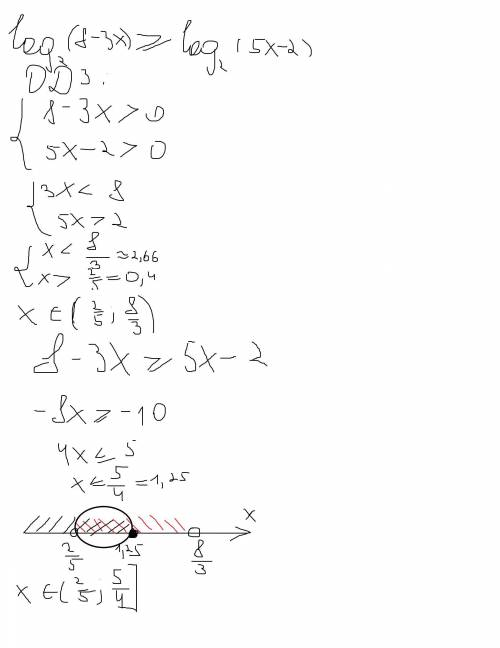 log₂(8-3x) ≥ log₂(5x-2)
ОДЗ:
8-3x>0
5x-2>0
3x<8
5x>2
x< 8/3 ≈2,66
x> 2/5 =0,4
x ∈ (2/5; 8/3)
8-3x ≥ 5x-2
-8x ≥ -10
4x ≤ 5
x ≤ 5/4 =1,25
x
2/5 1,25 8/3
x ∈ (2/5; 5/4]